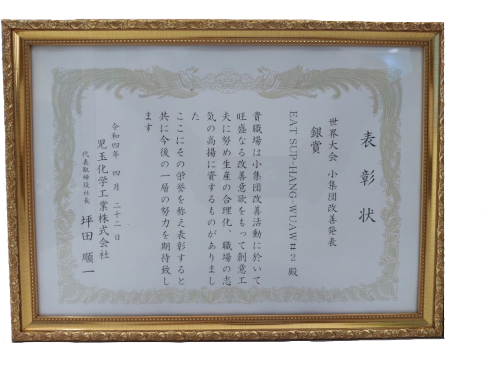 表彰状
世界大会 小集団改善発表
銀賞
EAT SUP-HANG WUAW#2 殿
貴職場は小集団改善活動に於いて
旺盛なる改善意欲をもって創意工
夫に努め生産の合理化、職場の志
気の高揚に資するものがありまし
た
ここにその栄誉を称え表彰すると
共に今後の一層の努力を期待致し
ます
令和四年 四月 二十二日
児玉化学工業株式会社
代表取締役社長 坪田 順一